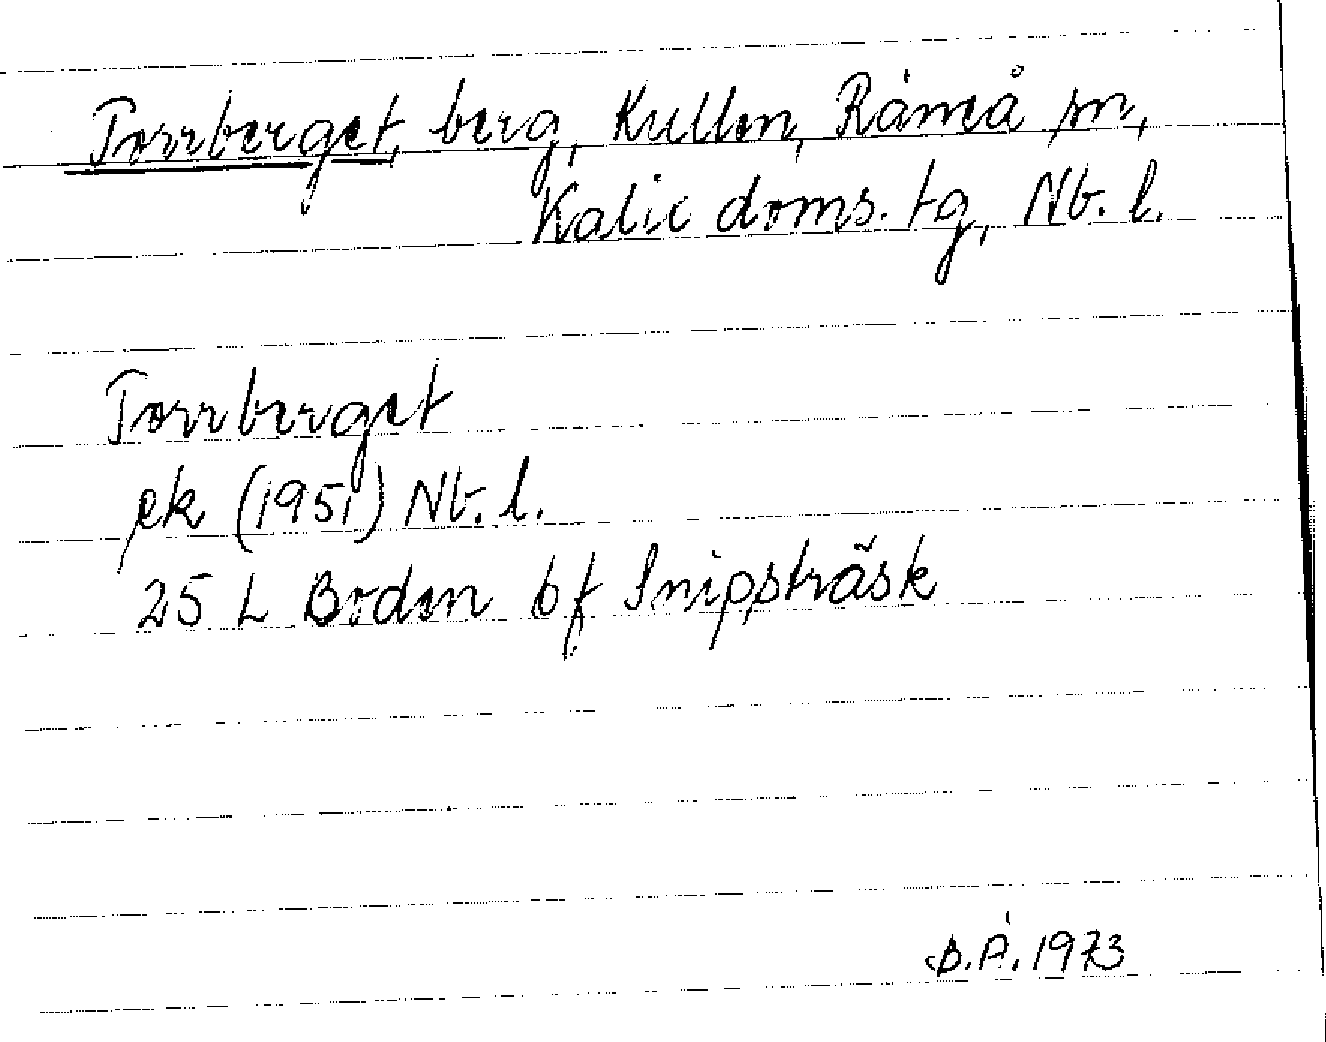 Torrberget, berg, Kullen, Råneå sn,
Kalix doms. tg, Nb. l.
Torrberget
ek (1951) Nb. l.
25 L Boden bf Snippträsk
B.Å. 1973